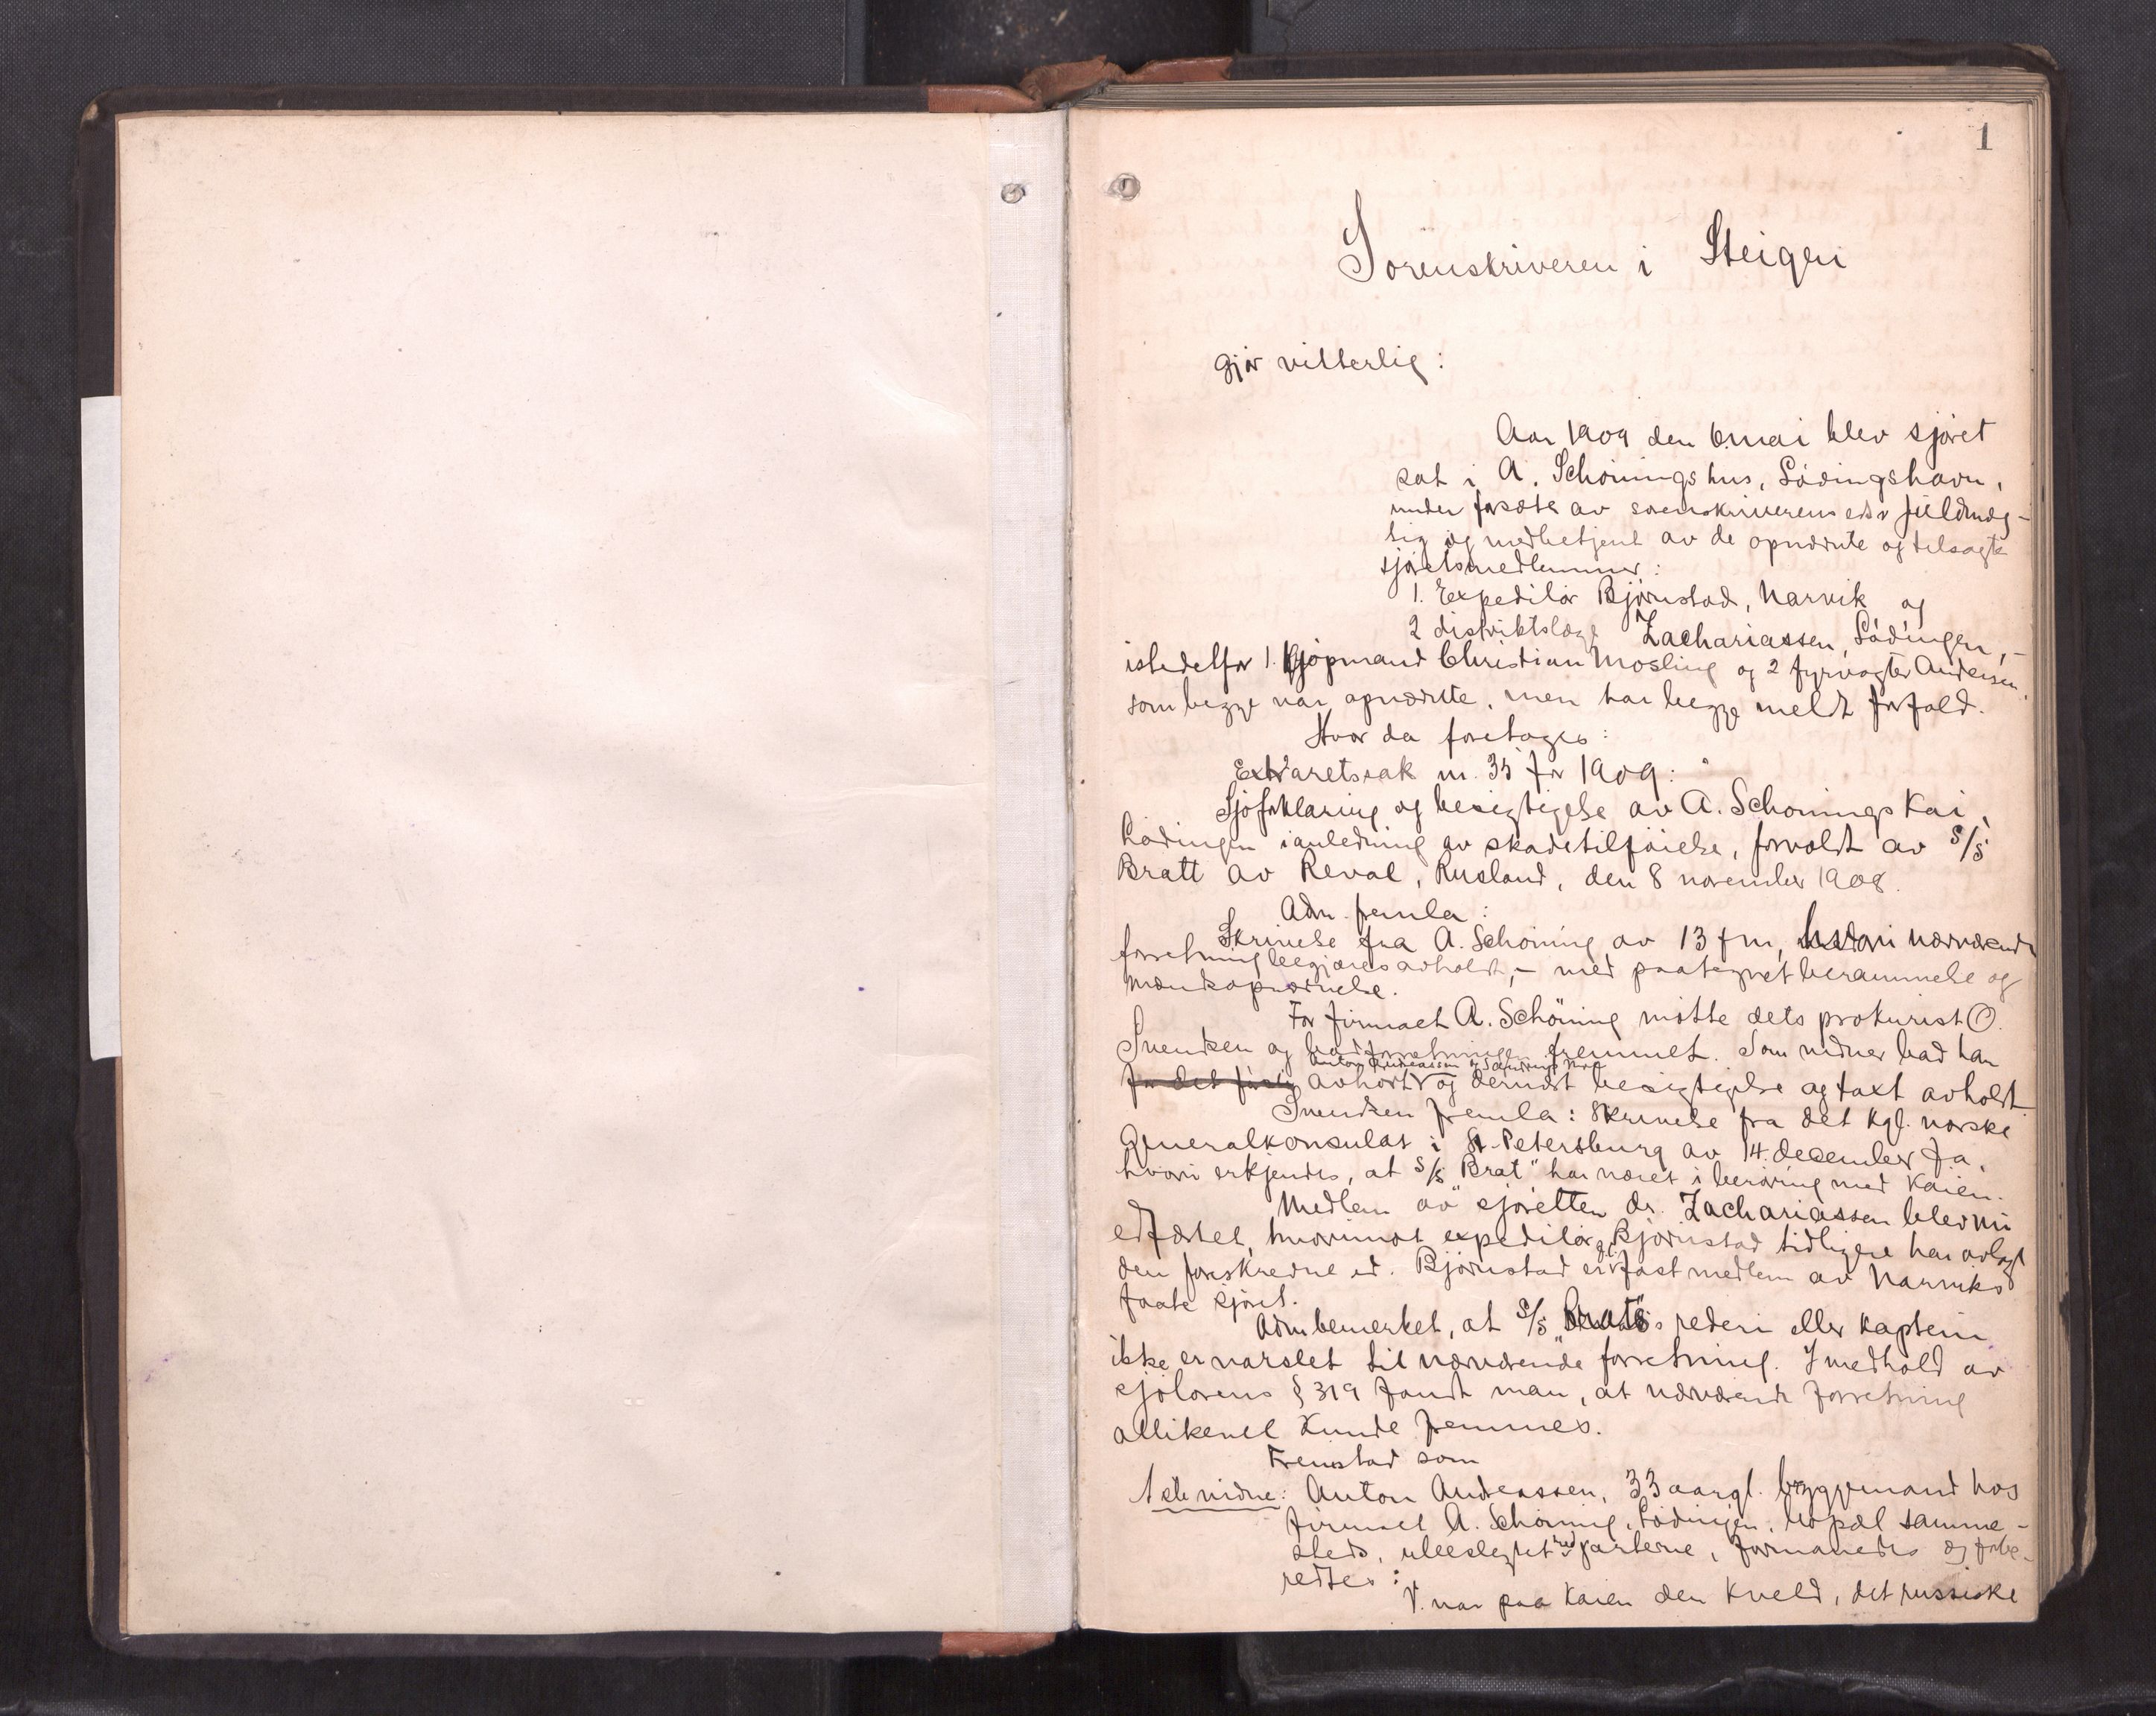 1
Sorenskriveren i Steigen
gjør vitterlig:
Aar 1909 den 6 mai blev sjøret
sat i A. Schønings hus, Lødingshavn,
under forsæte av sorenskriverens edsv fuldmæg-
tig og medbetjent av de opnævnte og tilsagte
sjøretsmedlemmer:
1. Expeditør Bjørnstad, Narvik og
2 distriktslæge Zachariassen, Lødingen,-
istedetfor 1. Kjøpmand Christian Mosling og 2 fyrvogter Andersen,
som begge var opnævnte, men har begge meldt forfald.
Hvor da foretoges:
Extraretssak nr. 35 for 1909:
Sjøforklaring og besigtigelse av A. Schønings Kai,
Lødingen i anledning av skadetilføielse, forvoldt av S/S
Bratt av Reval, Rusland, den 8 november 1908.
Adm. fremla:
Skrivelse fra A. Schøning av 13 f m, hvori nærværende
forretning begjæres avholdt, - med paategnet berammelse og
mændsopnævnelse.
For firmaet A. Schöning møtte dets prokurist O.
Svendsen og bad forretningen fremmet. Som vidner bad han
Anton Andreassen og
for det første avhørt og dernæst besigtigelse og taxt avholdt
Svendsen fremla: Skrivelse fra det Kgl. norske
Generalkonsulat i St. Petersburg av 14. december f a,
hvori erkjendes, at S/S "Brat" har været i berøring med Kaien.
Medlem av sjøretten dr. Zachariassen blev nu
edfæstet, hvorimot expeditør Bjørnstad tidligere har avlagt
den foreskrevne ed. Bjørnstad er fast medlem av Narviks
faste sjøret.
Adm bemerket, at S/S "Brat"s rederi eller Kaptein
ikke er varslet til nærværende forretning. I medhold av
sjølovens § 319 fandt man, at nærværende forretning
allikevel Kunde fremmes.
Fremstod som
1ste vidne: Anton Andreassen, 33 aar gl. bryggemand hos
firmaet A. Schøning, Lødingen, bopæl samme-
steds, ubeslegtet med parterne, formanedes og forbe-
redtes:
V. var paa Kaien den Kveld, det russiske